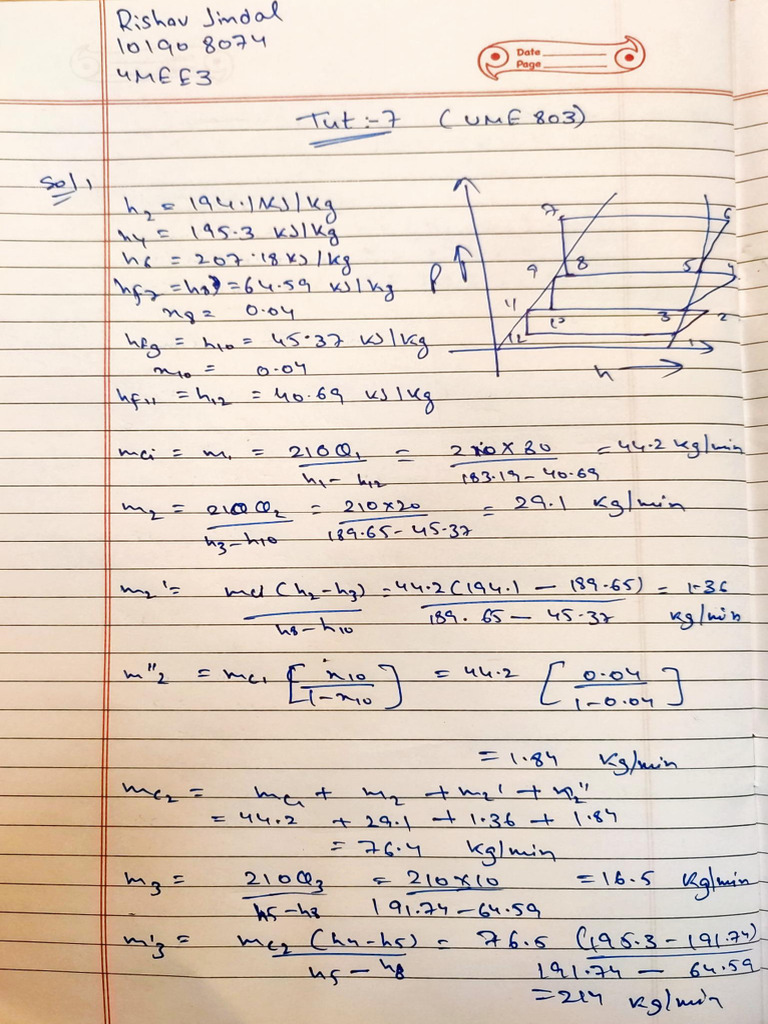 Rishav Jindal
101908074
4MEE3
Date
Page
Tut:-7 (UME 803)
Sol 1
h2 = 194.1 KJ/kg
h4 = 195.3 kJ/kg
h6 = 207.18 kJ/kg
hf7 = h8 = 64.59 kJ/kg
x8 = 0.04
hf9 = h10 = 45.37 kJ/kg
x10 = 0.04
hf11 = h12 = 40.69 kJ/kg
P
h
7 6
9 8 5 4
11 10 3 2
12 1
mc1 = m1 = 210Q1 / (h1 - h12) = 210 × 30 / (183.19 - 40.69) = 44.2 kg/min
m2 = 210Q2 / (h3 - h10) = 210×20 / (189.65 - 45.37) = 29.1 kg/min
m2' = mc1 (h2 - h3) / (h8 - h10) = 44.2 (194.1 - 189.65) / (189.65 - 45.37) = 1.36 kg/min
m"2 = mc1 [x10 / (1 - x10)] = 44.2 [0.04 / (1 - 0.04)]
= 1.84 kg/min
mc2 = mc1 + m2 + m2' + m2"
= 44.2 + 29.1 + 1.36 + 1.84
= 76.4 kg/min
m3 = 210Q3 / (h5 - h8) = 210×10 / (191.74 - 64.59) = 16.5 kg/min
m'3 = mc2 (h4 - h5) / (h5 - h8) = 76.5 (195.3 - 191.74) / (191.74 - 64.59)
= 2.14 kg/min